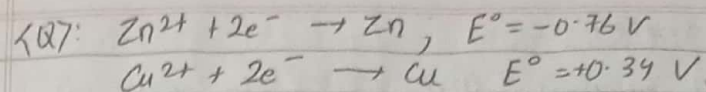 <Q7: Zn²⁺ + 2e⁻ → Zn, E° = -0.76 V
Cu²⁺ + 2e⁻ → Cu E° = +0.34 V